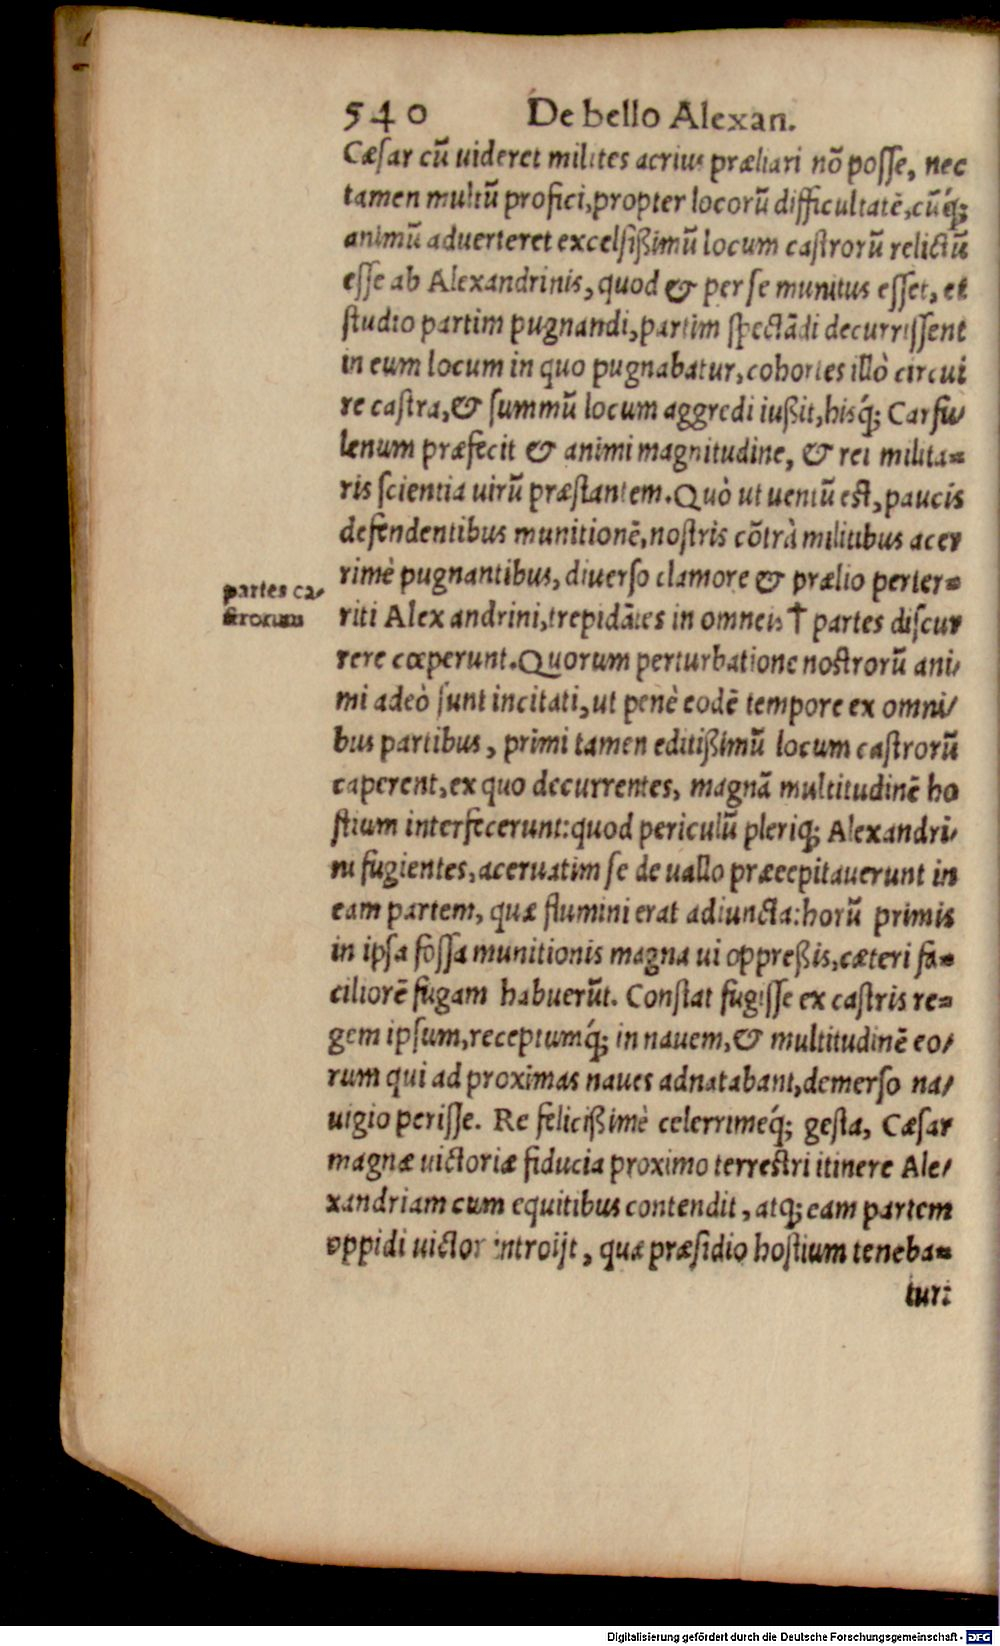 540 De bello Alexan.
Cæſar cū uideret milites acrius præliari nō poſſe, nec
tamen multū profici, propter locorū difficultatē, cūq́;
animū aduerteret excelſißimū locum caſtrorū relictū
eſſe ab Alexandrinis, quod & per ſe munitus eſſet, et
ſtudio partim pugnandi, partim ſpectādi decurriſſent
in eum locum in quo pugnabatur, cohortes illò circui
re caſtra, & ſummū locum aggredi iußit, hisq́; Carfu/
lenum præfecit & animi magnitudine, & rei milita=
ris ſcientia uirū præſtantem. Quò ut uentū eſt, paucis
defendentibus munitionē, noſtris cōtrà militibus acer
rimè pugnantibus, diuerſo clamore & prælio perter=
partes ca/
ſtrorum
riti Alexandrini, trepidātes in omneis † partes diſcur
rere cœperunt. Quorum perturbatione noſtrorū ani/
mi adeò ſunt incitati, ut penè eodē tempore ex omni/
bus partibus, primi tamen editißimū locum caſtrorū
caperent, ex quo decurrentes, magnā multitudinē ho
ſtium interfecerunt: quod periculū pleriq; Alexandri/
ni fugientes, aceruatim ſe de uallo præcepitauerunt in
eam partem, quæ flumini erat adiuncta: horū primis
in ipſa foſſa munitionis magna ui oppreßis, cæteri fa=
ciliorē fugam habuerūt. Conſtat fugiſſe ex caſtris re=
gem ipſum, receptumq́; in nauem, & multitudinē eo/
rum qui ad proximas naues adnatabant, demerſo na/
uigio periſſe. Re felicißimè celerrimeq́; geſta, Cæſar
magnæ uictoriæ fiducia proximo terreſtri itinere Ale/
xandriam cum equitibus contendit, atq; eam partem
oppidi uictor introijt, quæ præſidio hoſtium teneba=
tur:
Digitalisierung gefördert durch die Deutsche Forschungsgemeinschaft - DFG